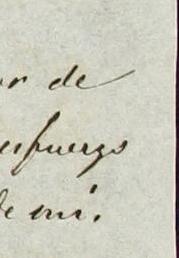 or de
esfuerzo
de mi.